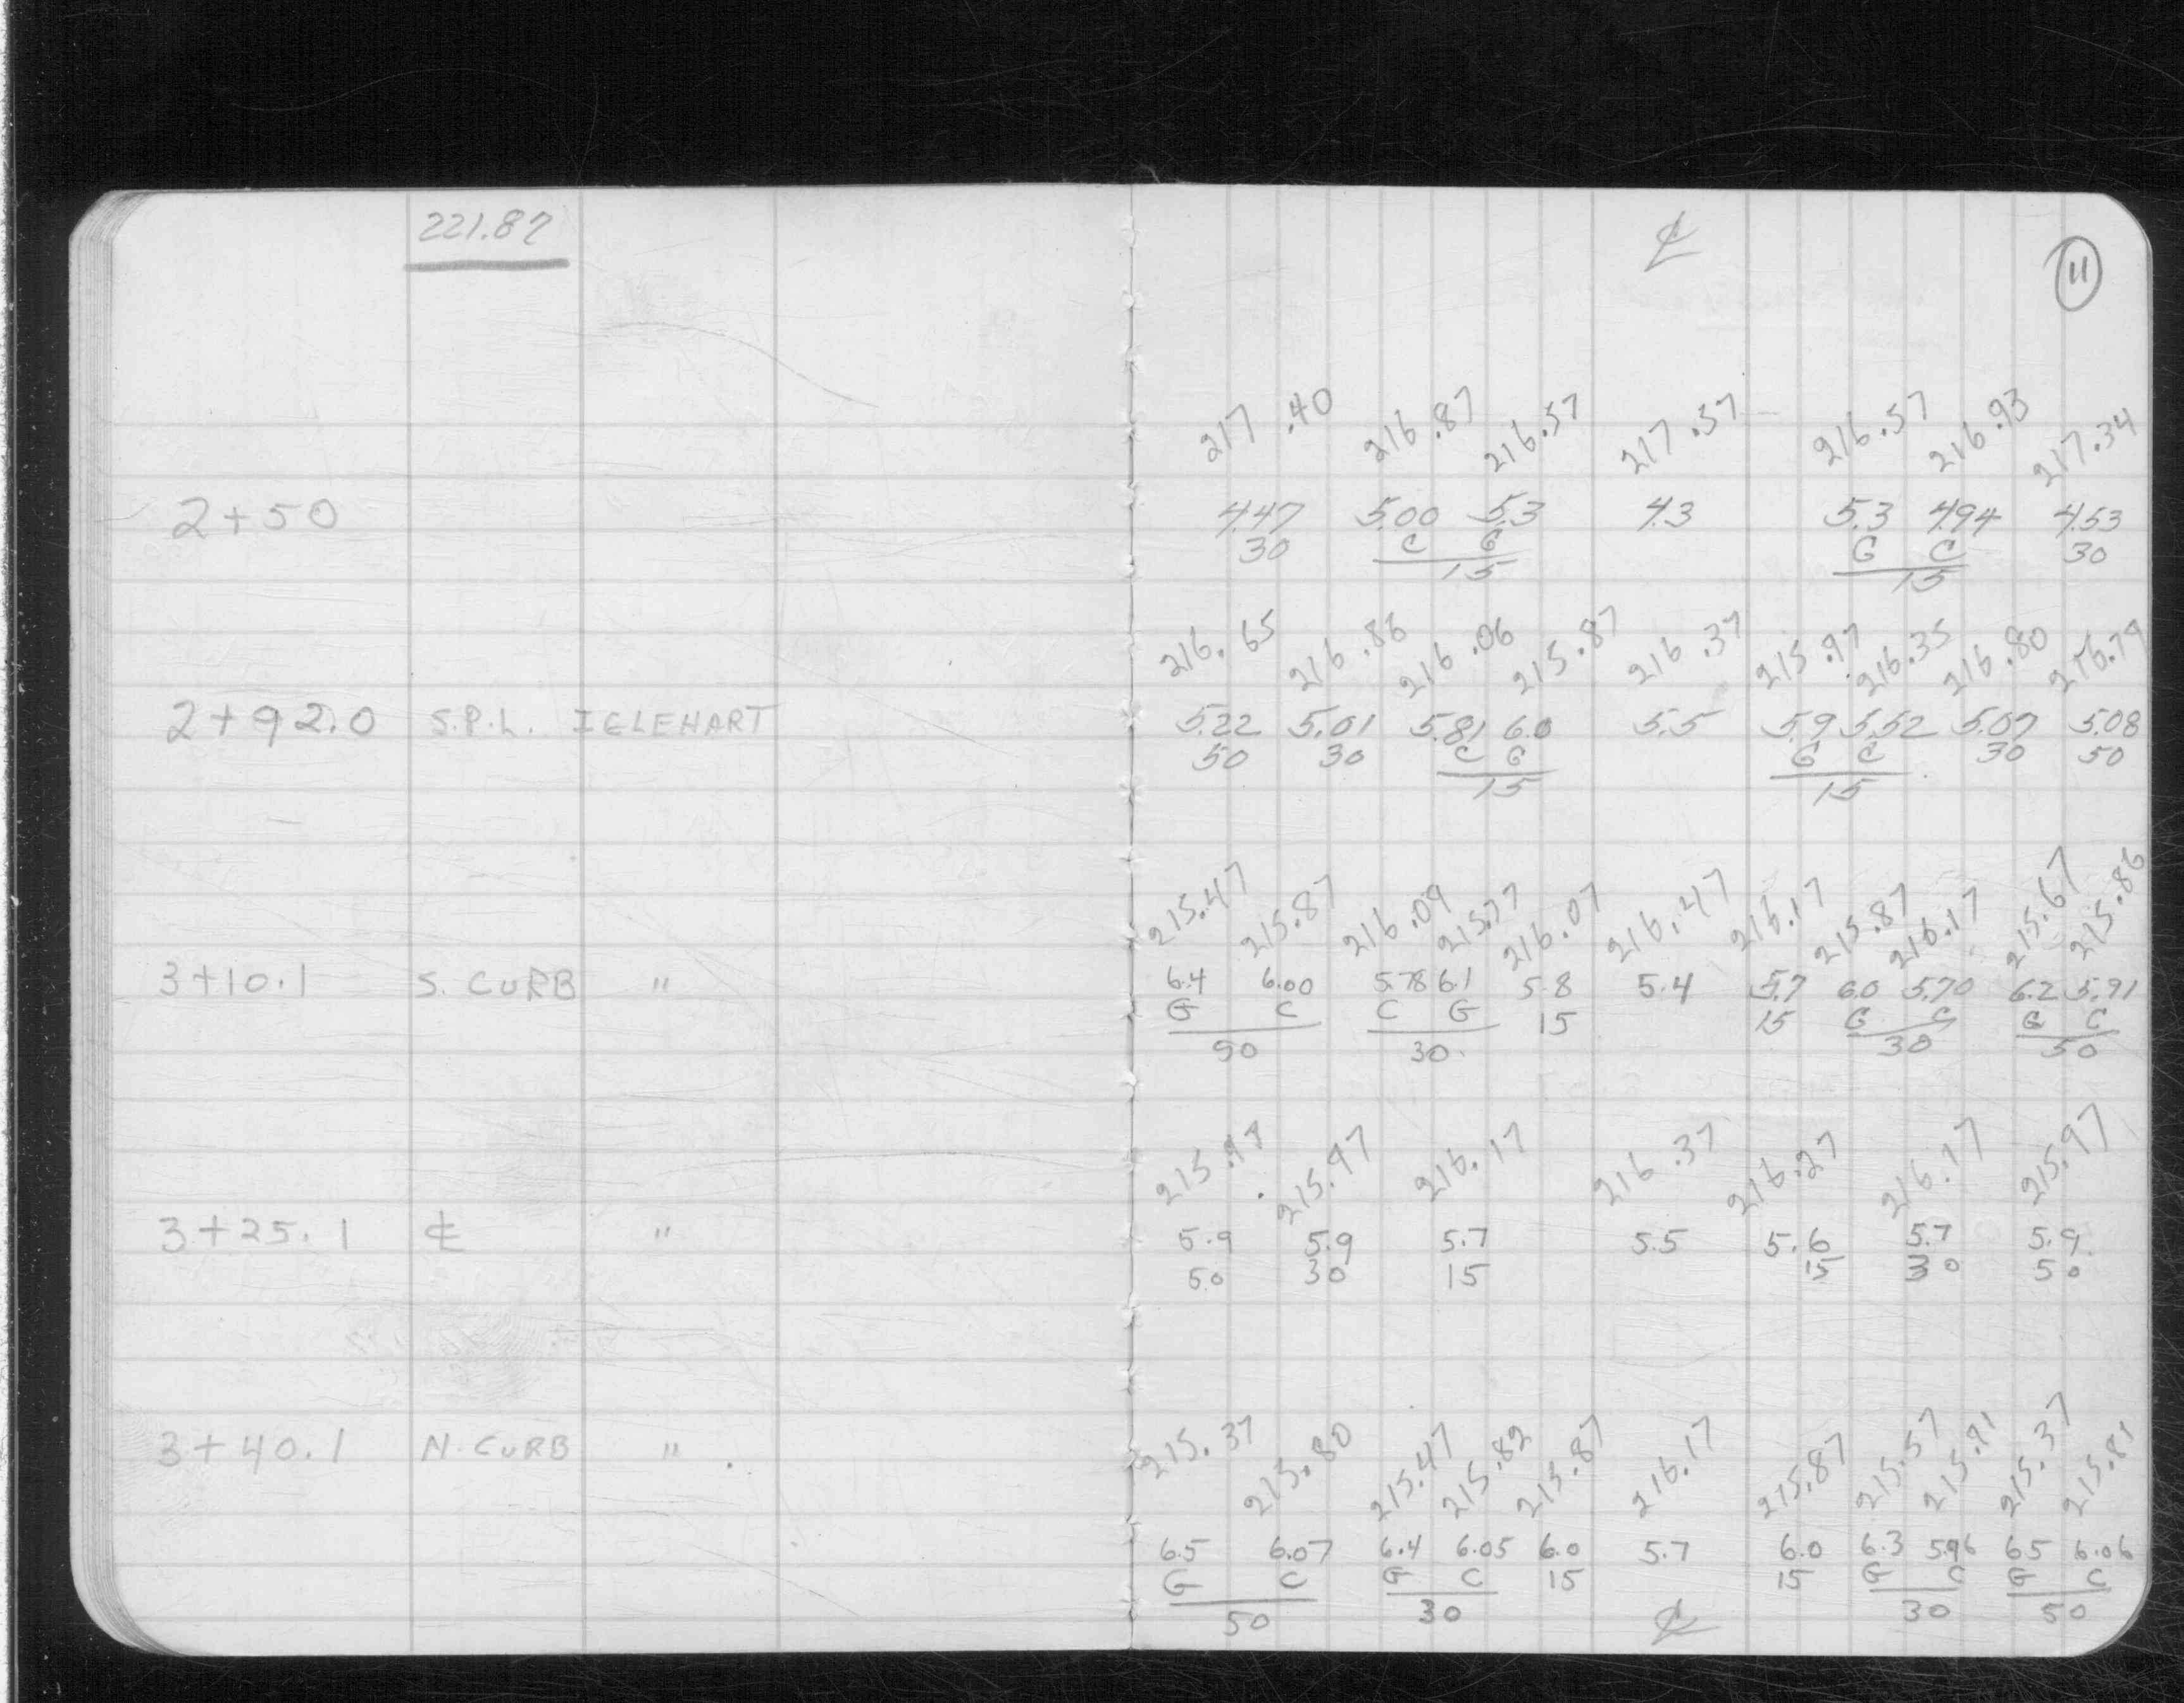 221.87
℄
11
217.40 216.87 216.57 217.57 216.57 216.93 217.34
2+50 4.47 5.00 5.3 4.3 5.3 4.94 4.53
30 C G G C 30
15 15
216.65 216.86 216.06 215.87 216.37 215.97 216.35 216.80 216.79
2+92.0 S.P.L. IGLEHART 5.22 5.01 5.81 6.0 5.5 5.9 5.52 5.07 5.08
50 30 C G G C 30 50
15 15
215.47 215.87 216.09 215.77 216.07 216.47 216.17 215.87 216.17 215.67 215.86
3+10.1 S. CURB " 6.4 6.00 5.78 6.1 5.8 5.4 5.7 6.0 5.70 6.2 5.91
G C C G 15 15 G C G C
50 30 30 50
215.97 215.97 216.17 216.37 216.27 216.17 215.97
3+25.1 ℄ " 5.9 5.9 5.7 5.5 5.6 5.7 5.9
50 30 15 15 30 50
215.37 215.80 215.47 215.82 215.87 216.17 215.87 215.57 215.91 215.37 215.81
3+40.1 N. CURB "
6.5 6.07 6.4 6.05 6.0 5.7 6.0 6.3 5.96 6.5 6.06
G C G C 15 15 G C G C
50 30 ℄ 30 50